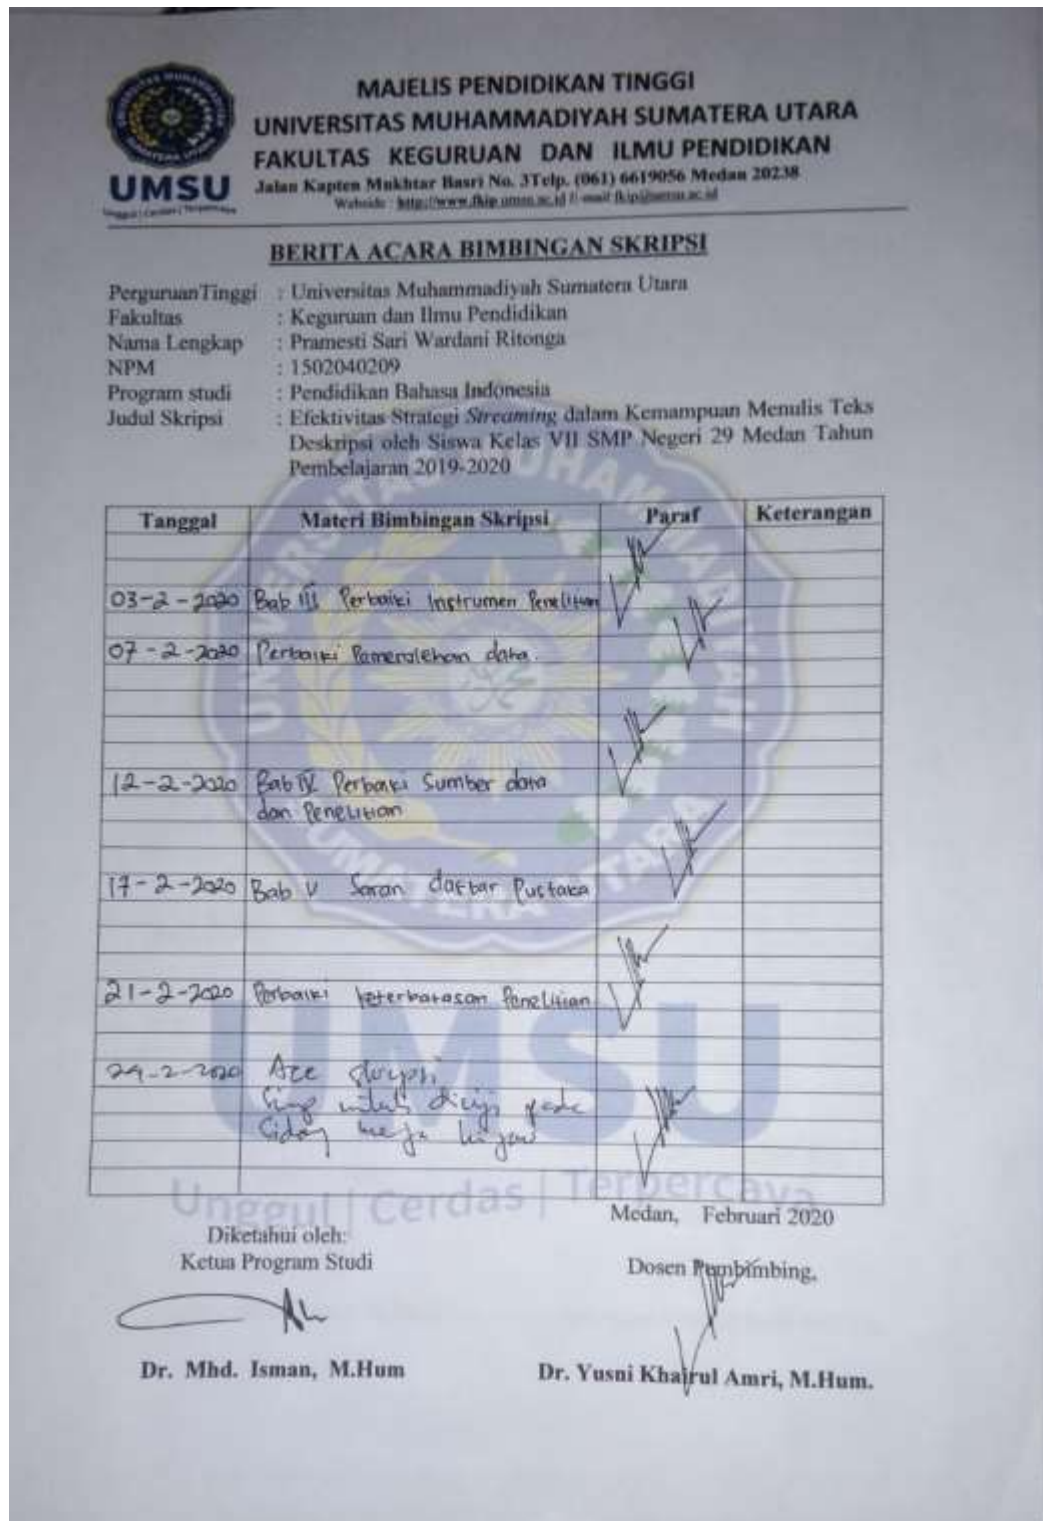 MAJELIS PENDIDIKAN TINGGI
UNIVERSITAS MUHAMMADIYAH SUMATERA UTARA
FAKULTAS KEGURUAN DAN ILMU PENDIDIKAN
Jalan Kapten Mukhtar Basri No. 3Telp. (061) 6619056 Medan 20238
http://www.fkip.umsu.ac.id
UMSU
Unggul | Cerdas | Terpercaya
BERITA ACARA BIMBINGAN SKRIPSI
PerguruanTinggi : Universitas Muhammadiyah Sumatera Utara
Fakultas : Keguruan dan Ilmu Pendidikan
Nama Lengkap : Pramesti Sari Wardani Ritonga
NPM : 1502040209
Program studi : Pendidikan Bahasa Indonesia
Judul Skripsi : Efektivitas Strategi Streaming dalam Kemampuan Menulis Teks
Deskripsi oleh Siswa Kelas VII SMP Negeri 29 Medan Tahun
Pembelajaran 2019-2020
Tanggal Materi Bimbingan Skripsi Paraf Keterangan
03-2-2020 Bab III Perbaiki Instrumen Penelitian
07-2-2020 Perbaiki Pemerolehan data.
12-2-2020 Bab IV Perbaiki Sumber data
dan Penelitian
17-2-2020 Bab V Saran daftar Pustaka
21-2-2020 Perbaiki keterbatasan Penelitian
24-2-2020 Acc skripsi
untuk diuji pada
Sidang meja hijau
UMSU
Unggul | Cerdas | Terpercaya
Medan, Februari 2020
Diketahui oleh:
Ketua Program Studi
Dosen Pembimbing,
Dr. Mhd. Isman, M.Hum
Dr. Yusni Khairul Amri, M.Hum.